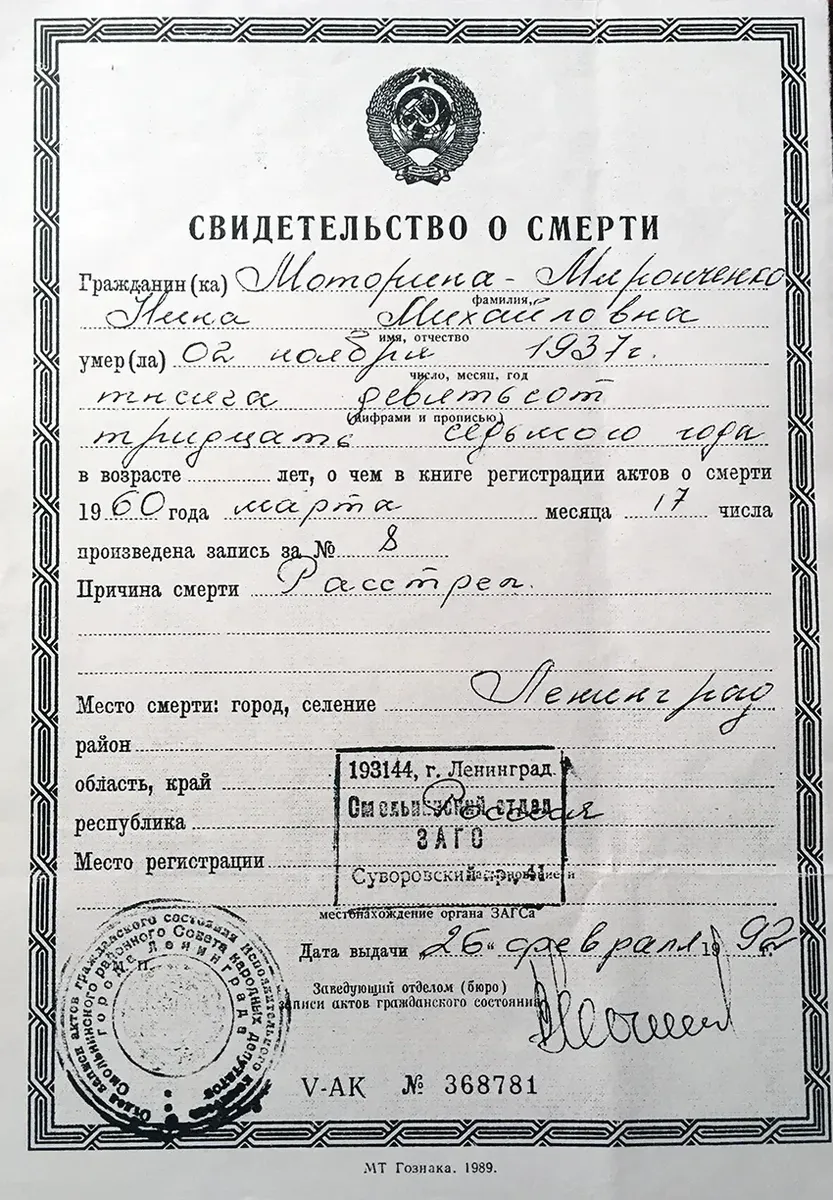 СВИДЕТЕЛЬСТВО О СМЕРТИ
Гражданин (ка) Моторина - Мироиченко
фамилия,
Нина Михайловна
имя, отчество
умер(ла) 02 ноября 1937г.
число, месяц, год
тысяча девятьсот
(цифрами и прописью)
тридцать седьмого года
в возрасте лет, о чем в книге регистрации актов о смерти
1960 года марта месяца 17 числа
произведена запись за № 8
Причина смерти Расстрел.
Место смерти: город, селение Ленинград
район
область, край
республика Россия
Место регистрации
193144, г. Ленинград
Смольнинский отдел
ЗАГС
Суворовский пр., 41
местонахождение органа ЗАГСа
Дата выдачи „26“ февраля 1992 г.
Заведующий отделом (бюро)
записи актов гражданского состояния
М. П.
Отдел записи актов гражданского состояния Исполнительного комитета
Смольнинского районного Совета народных депутатов
города Ленинграда
V-АК № 368781
МТ Гознака. 1989.